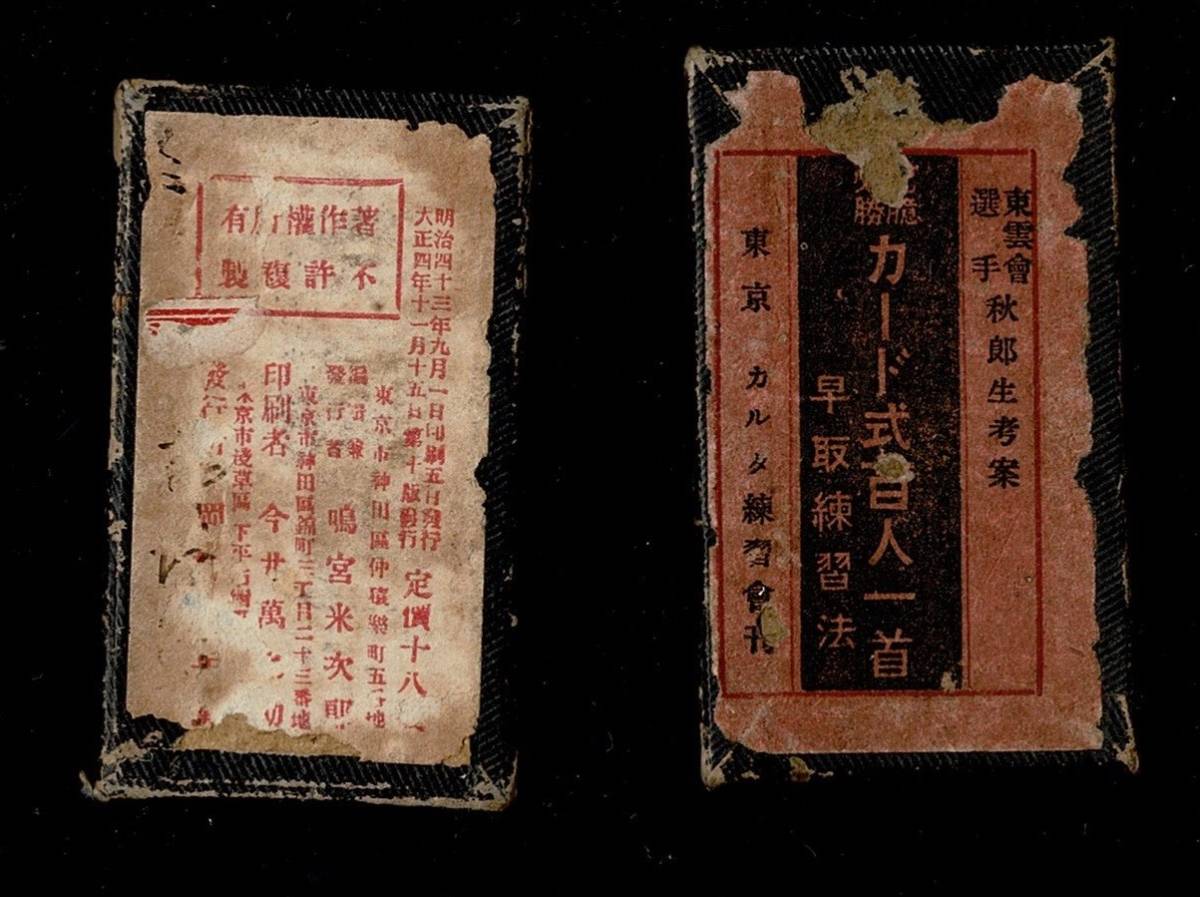 著作權所有
不許複製
明治四十三年九月一日印刷五日發行
大正四年十一月十五日第十版發行
定價十八
東京市神田區仲猿樂町五 地
編輯兼
發行者
鳴宮米次郎
東京市神田區錦町三丁目二十三番地
印刷者 今井萬
京市淺草區下平右
發行
東雲會
選手
秋郎生考案
勝
カード式百人一首
早取練習法
東京カルタ練習會刊